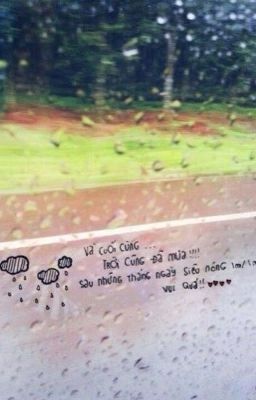 Và cuối cùng ...
Trời cũng đã mưa !!!!
sau những tháng ngày siêu nóng
vui quá!! ♥♥♥♥